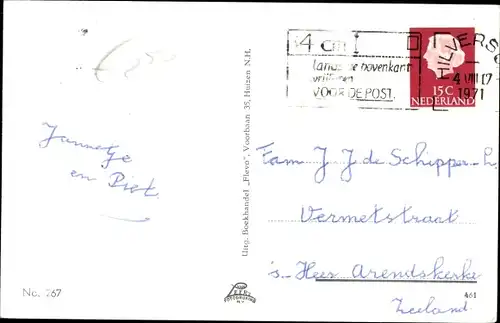 4 cm
langs de bovenkant
vrijlaten
VOOR DE POST.
HILVERSU
4 VIII 17
1971
15 C
NEDERLAND
Jannetje
en Piet.
Fam J J de Schipper-
Vermetstraat
's-Heer Arendskerke
Zeeland.
Uitg. Boekhandel „Flevo”, Voorbaan 35, Huizen N.H.
No. 767
461